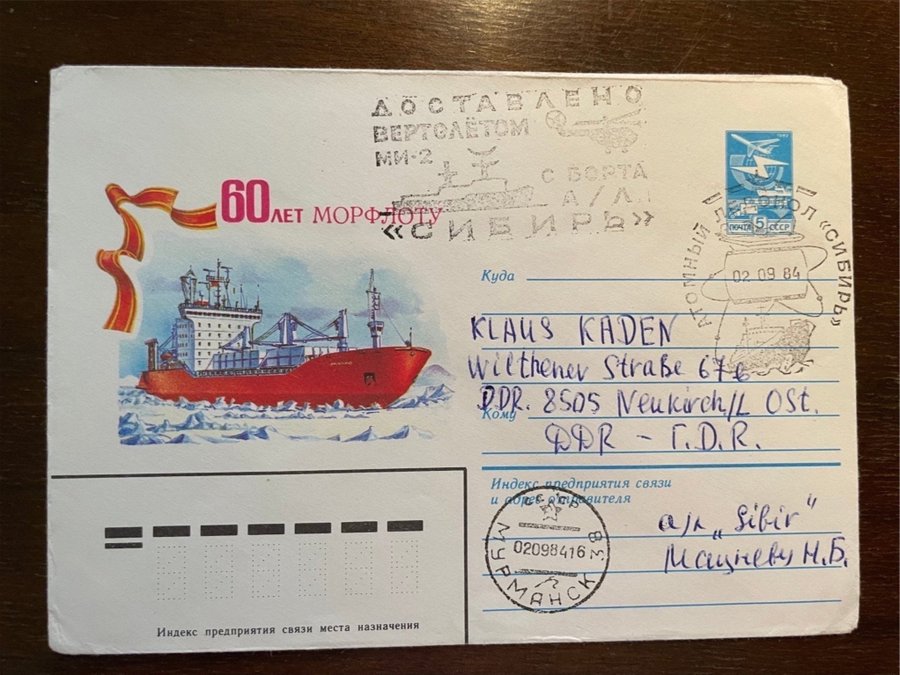 ДОСТАВЛЕНО
ВЕРТОЛЁТОМ
МИ-2
С БОРТА
А/Л
«СИБИРЬ»
60 ЛЕТ МОРФЛОТУ
ПОЧТА 5 СССР
АТОМНЫЙ ЛЕДОКОЛ «СИБИРЬ»
02 09 84
Куда
KLAUS KADEN
Wilthener Straße 67c
DDR. 8505 Neukirch/L OSt.
Кому
DDR - G.D.R.
Индекс предприятия связи
и адрес отправителя
а/л „Sibir"
Мацневу Н.Б.
СССР
МУРМАНСК 38
02098416
Индекс предприятия связи места назначения